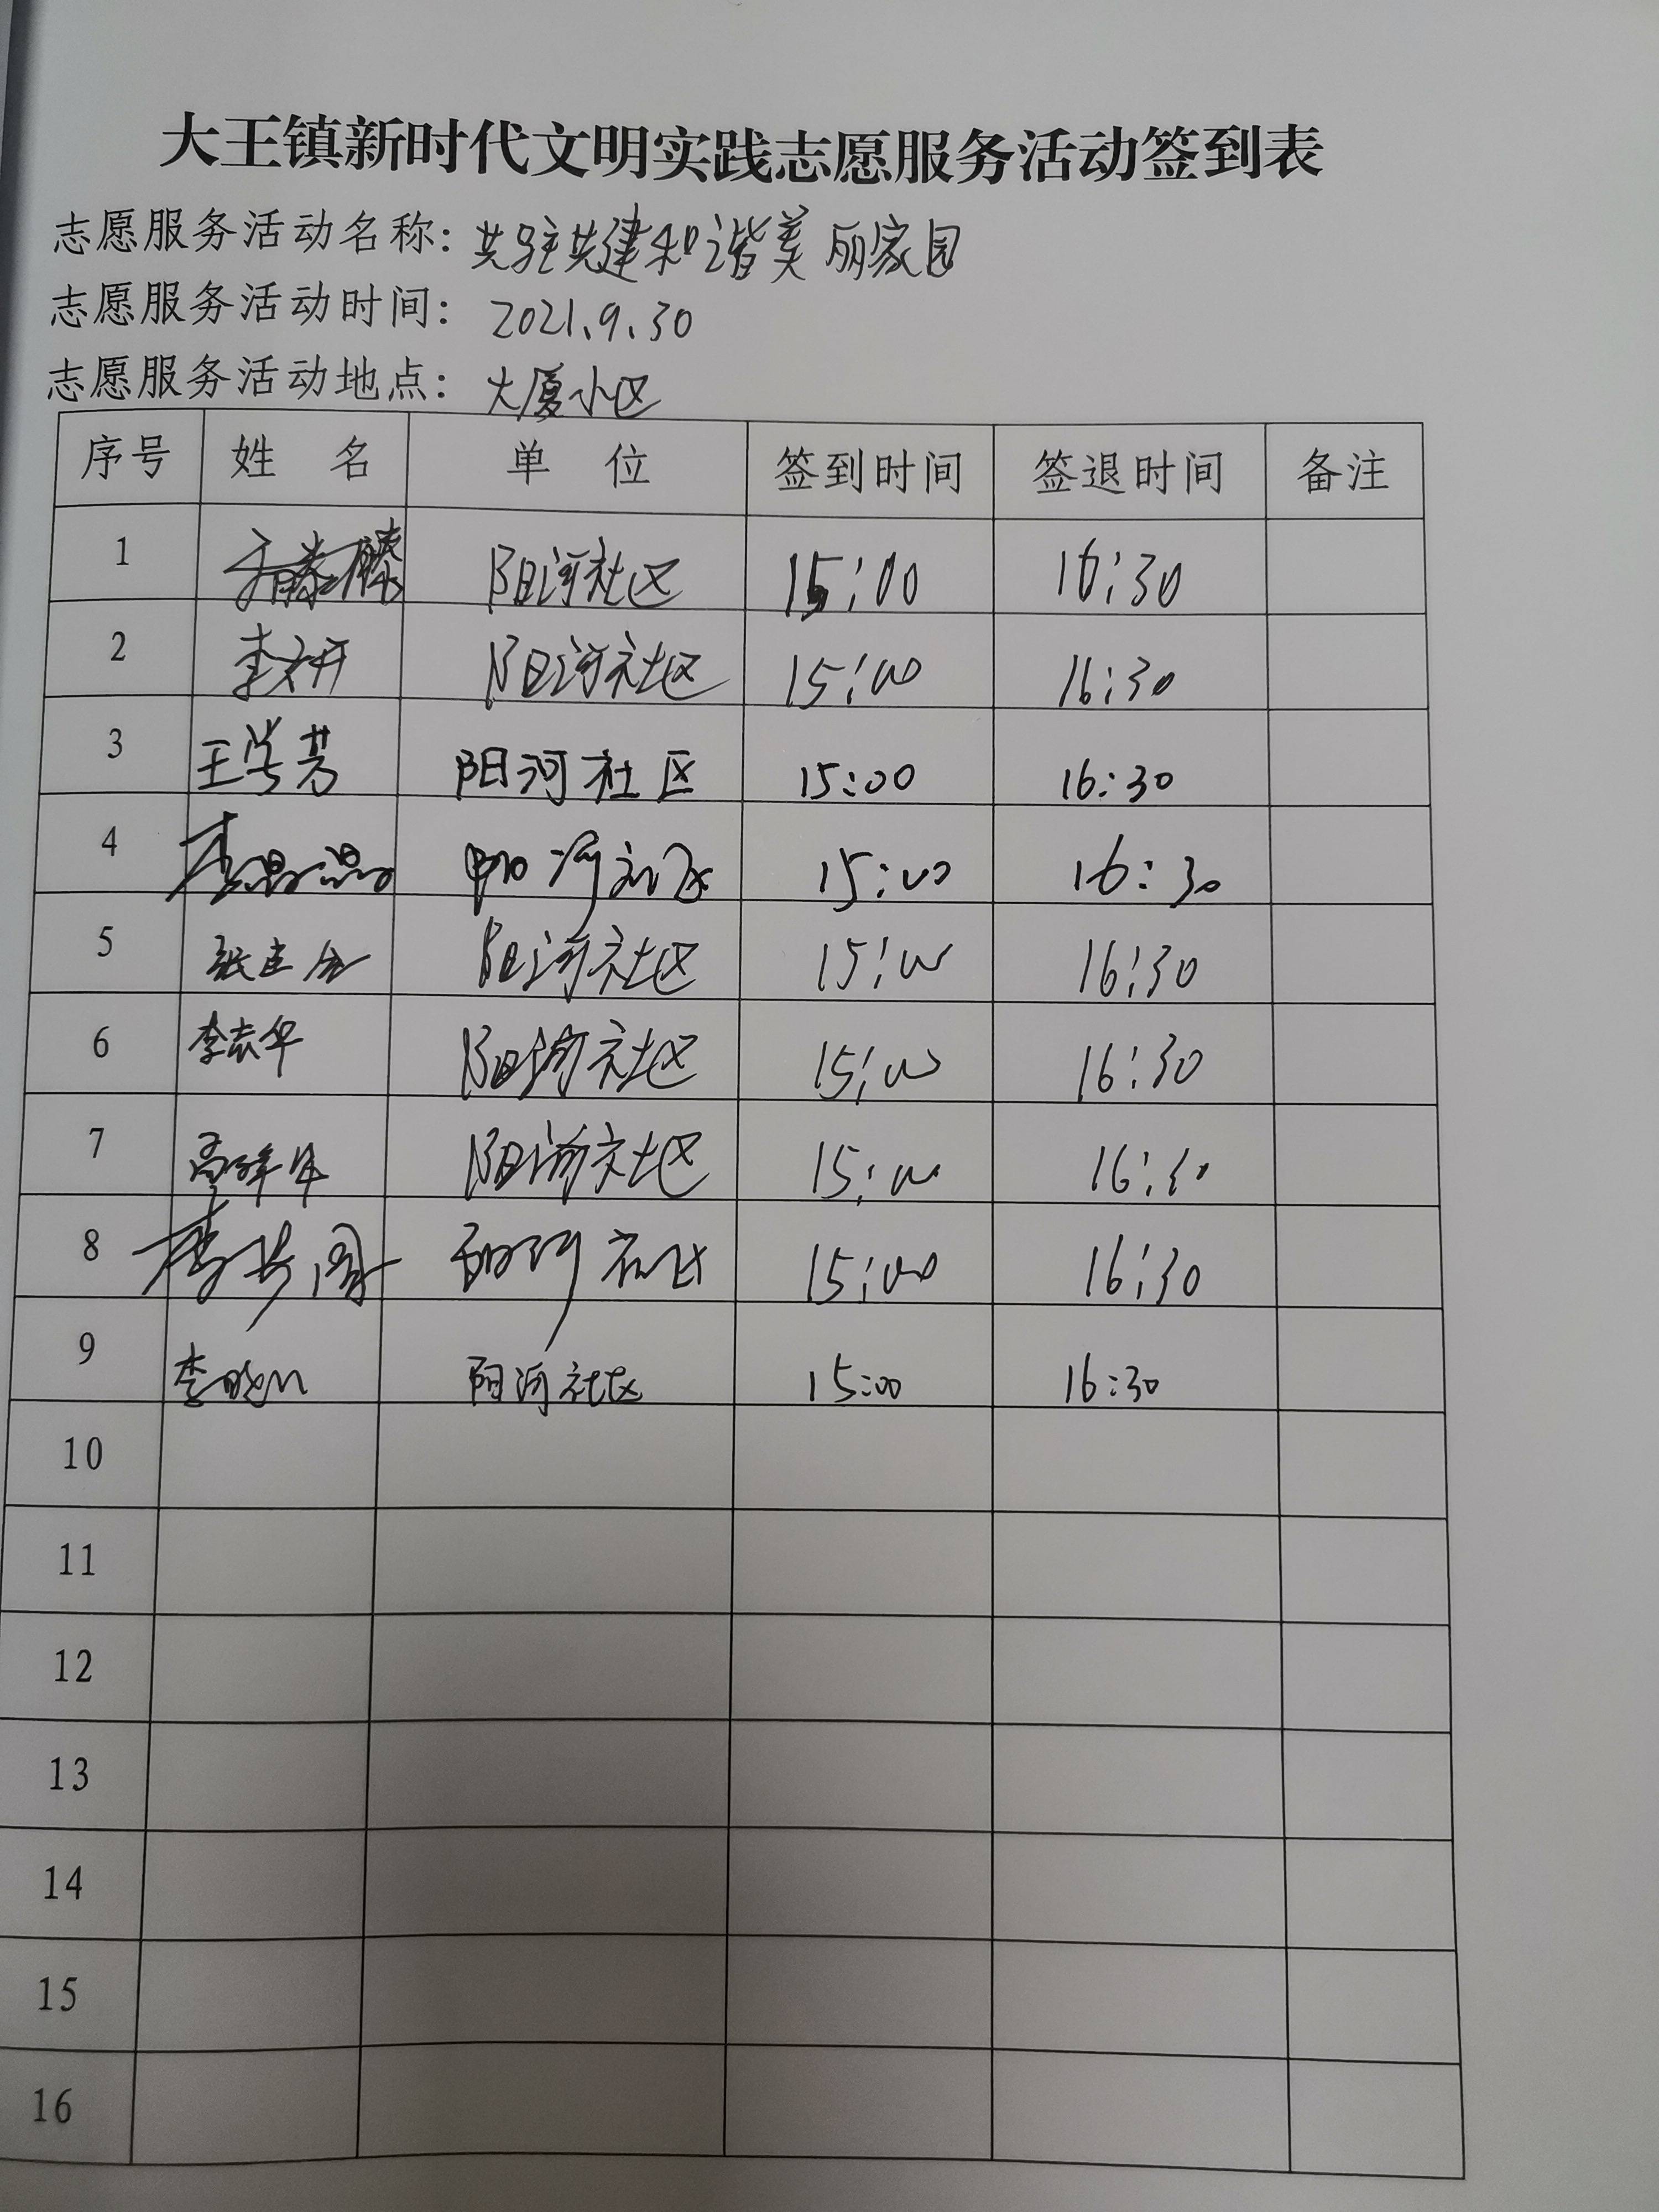 大王镇新时代文明实践志愿服务活动签到表
志愿服务活动名称：共驻共建和谐美丽家园
志愿服务活动时间：2021.9.30
志愿服务活动地点：大厦小区
序号 姓 名 单 位 签到时间 签退时间 备注
1 阳河社区 15:00 16:30
2 李文开 阳河社区 15:00 16:30
3 王学芳 阳河社区 15:00 16:30
4 李 阳河社区 15:00 16:30
5 张 阳河社区 15:00 16:30
6 李志华 阳河社区 15:00 16:30
7 高 阳河社区 15:00 16:30
8 李 阳河社区 15:00 16:30
9 李晓 阳河社区 15:00 16:30
10
11
12
13
14
15
16